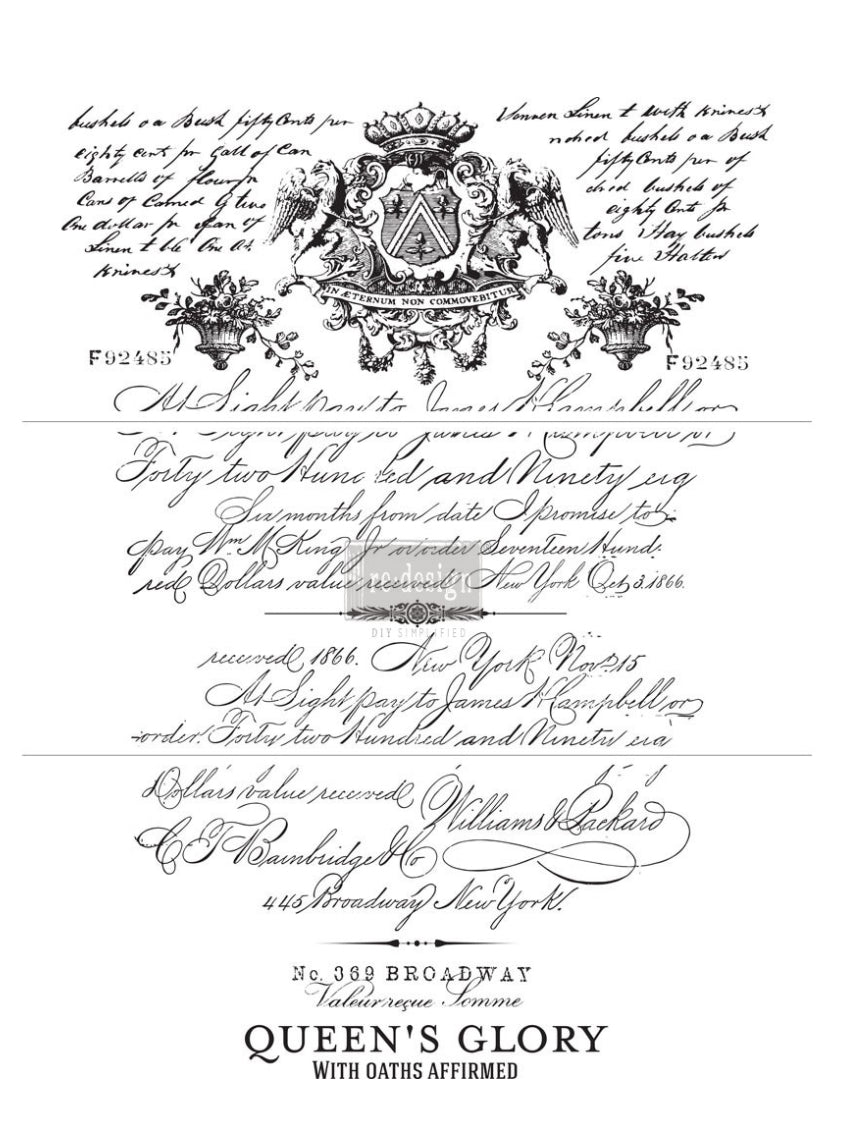 bushels oa Bush fifty Cents per
eighty cent pr Gall of Can
Barrells of flour pr
Cans of Corned G two
One dollar pr Can of
Linen t ble One at.
Linen t with
nohed bushels oa Bush
fifty Cents per of
ched bushels of
eighty Cents pr
tons Hay bushels
five
IN ÆTERNUM NON COMMOVEBITUR
F92485
F92485
At Sight pay to James H Campbell or
Forty two Hundred and Ninety eig
Six months from date I promise to
pay Wm M King Jr or order Seventeen Hund.
red Dollars value received New York Oct 3. 1866.
re·design
DIY SIMPLIFIED
received 1866. New York Nov. 15
At Sight pay to James H Campbell or
order. Forty two Hundred and Ninety eig
Dollars value received Williams & Packard
C T Bainbridge & Co
445 Broadway New York.
No. 369 BROADWAY
Valeur reçue Somme
QUEEN'S GLORY
WITH OATHS AFFIRMED